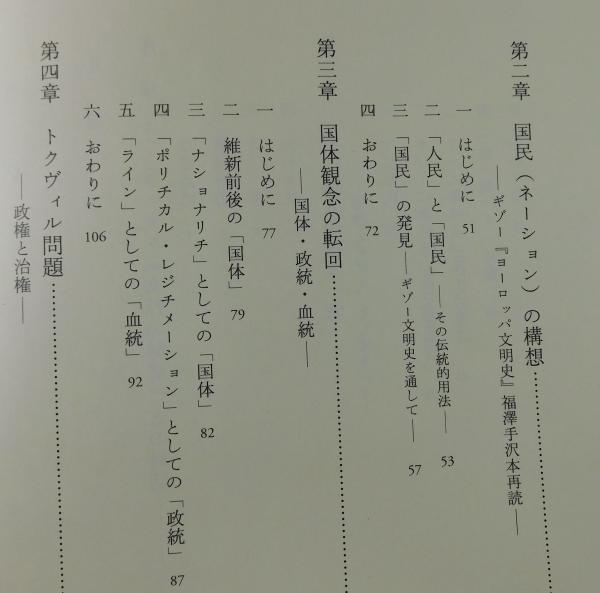 第二章　国民（ネーション）の構想……………
――ギゾー『ヨーロッパ文明史』福澤手沢本再読――
一　はじめに　51
二　「人民」と「国民」――その伝統的用法――　53
三　「国民」の発見――ギゾー文明史を通して――　57
四　おわりに　72
第三章　国体観念の転回……………
――国体・政統・血統――
一　はじめに　77
二　維新前後の「国体」　79
三　「ナショナリチ」としての「国体」　82
四　「ポリチカル・レジチメーション」としての「政統」　87
五　「ライン」としての「血統」　92
六　おわりに　106
第四章　トクヴィル問題……………
――政権と治権――